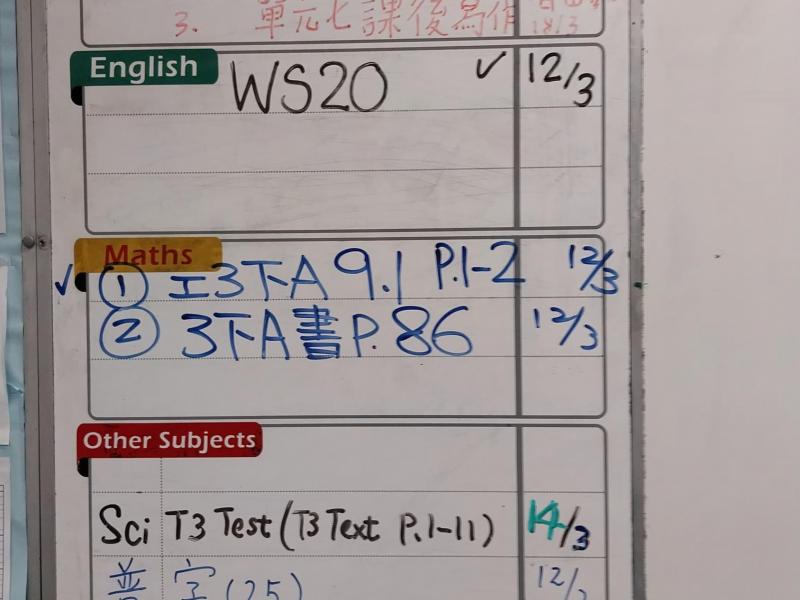 3. 單元七課後寫作
18/3
English
WS20 ✓ 12/3
Maths
✓ ① 工3下A 9.1 P.1-2 12/3
② 3下A書 P.86 12/3
Other Subjects
Sci T3 Test (T3 Text P.1-11) 14/3
普 字(25) 12/